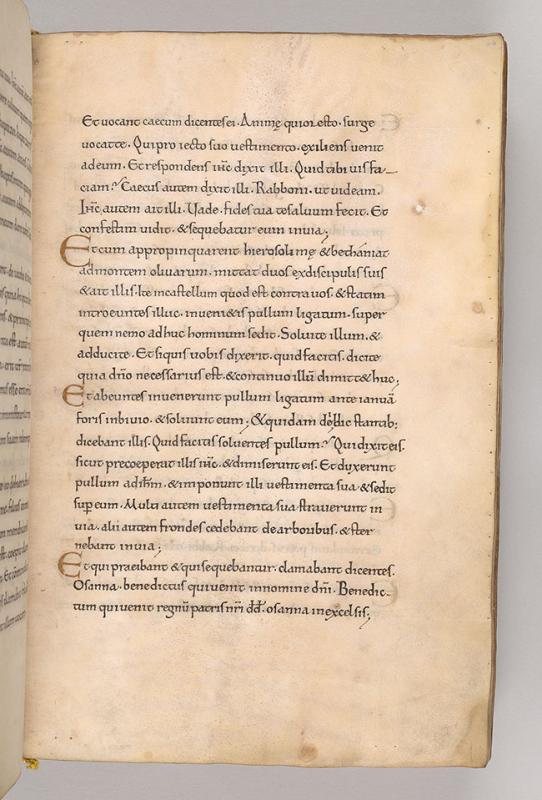 Et uocant caecum dicentes ei. Animę quior esto. surge
uocat te. Qui proiecto suo uestimento. exiliens uenit
ad eum. Et respondens ihc dixit illi. Quid tibi uis fa-
ciam? Caecus autem dixit illi. Rabboni. ut uideam.
Ihc autem ait illi. Uade. fides tua te saluum fecit. Et
confestim uidit. & sequebatur eum in uia;
Et cum appropinquarent hierosolimę & bethaniae
ad montem oliuarum. mittat duos ex discipulis suis
& ait illis. Ite in castellum quod est contra uos. & statim
introeuntes illuc. inueni&is pullum ligatum. super
quem nemo adhuc hominum sedit. Soluite illum. &
adducite. Et si quis uobis dixerit. quid facitis. dicite
quia dno necessarius est. & continuo illū dimitt& huc;
Et abeuntes inuenerunt pullum ligatum ante ianuā
foris in biuio. & soluunt eum; & quidam de illic stantib;
dicebant illis. Quid facitis soluentes pullum? Qui dixit eis.
sicut preceperat illis ihc. & dimiserunt eis. Et duxerunt
pullum ad ihm. & imponunt illi uestimenta sua. & sedit
sup eum. Multi autem uestimenta sua strauerunt in
uia. alii autem frondes cedebant de arboribus. & ster
nebant in uia;
Et qui praeibant & qui sequebantur. clamabant dicentes.
Osanna. benedictus qui uenit in nomine dni. Benedic-
tum qui uenit regnū patris nri dd. osanna in excelsis;